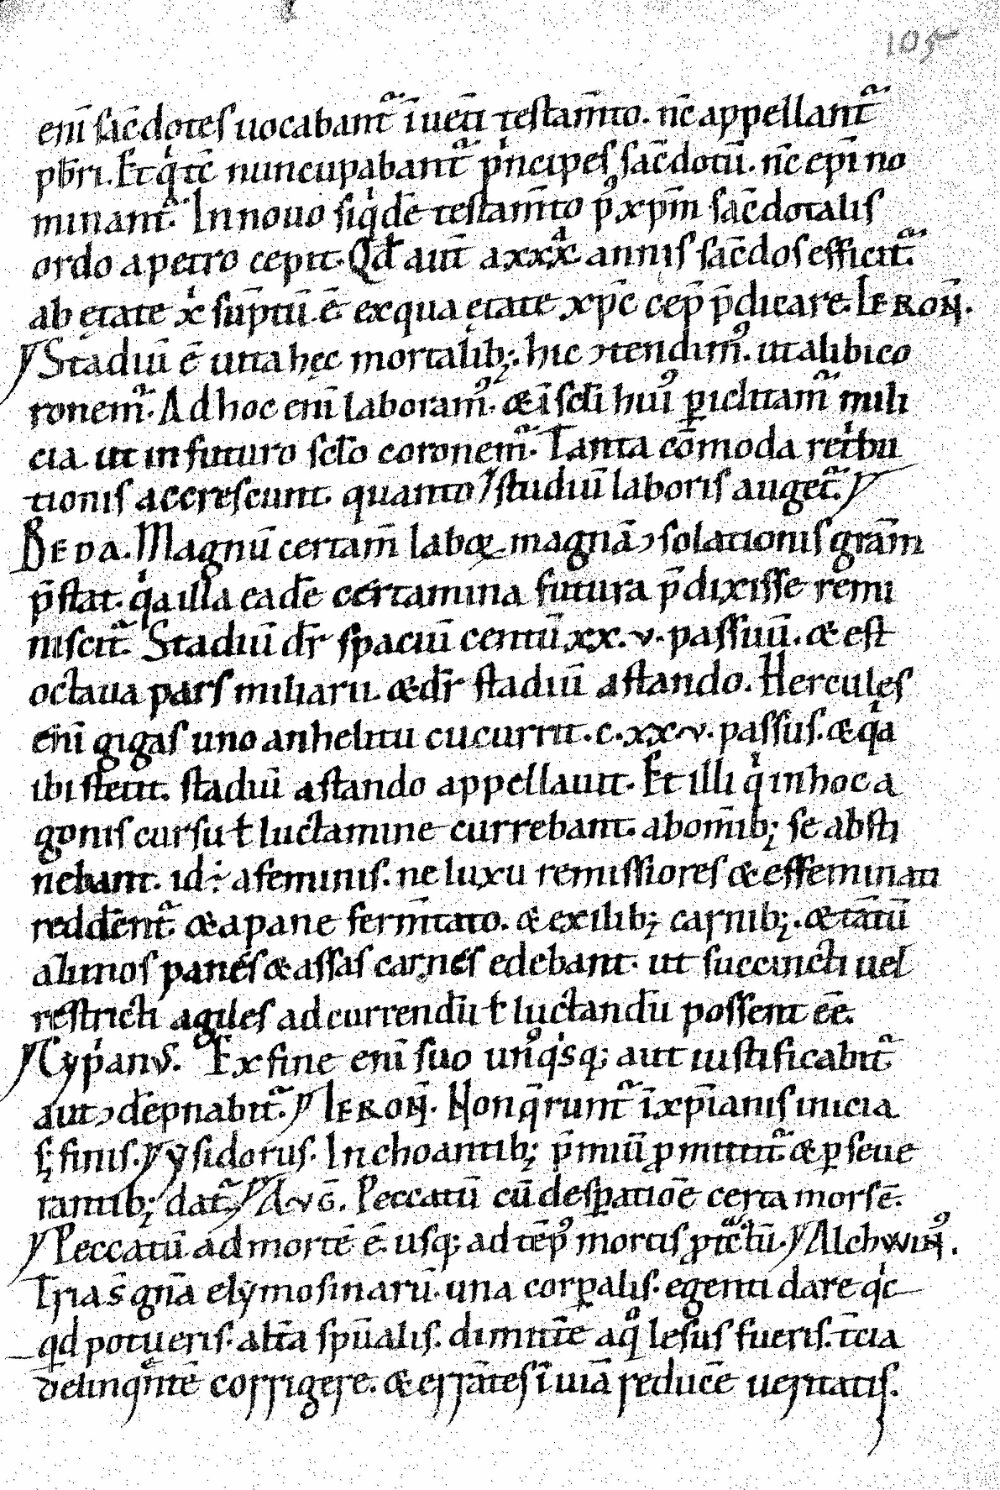 105
enī sac̄dotes uocabant᷑ ī uet̄i testam̄to. nc̄ appellant᷑
pb̄ri. Et qͥ tc̄ nuncupabant᷑ pͥncipes sac̄dotū. nc̄ ep̄i no
minant᷑. In nouo siqͥdē testam̄to pꝰ xp̄m sac̄dotalis
ordo a petro cepit. Qd̄ aut̄ a xxxͣ annis sac̄dos efficit᷑.
ab ętate xͥ sūptū ē ex qua ętate xp̄c cep̄ p̄dicare. IERON̄.
Stadiū ē uita hęc mortalib;. hic ↄtendimꝰ. ut alibi co
ronem᷑. Ad hoc enī laboramꝰ. & ī scl̄i huiꝰ ꝑiclitam᷑ mili
cia. ut in futuro scl̄o coronem᷑. Tanta cōmoda retͥbu
tionis accrescunt. quanto studiū laboris auget᷑.
BEDA. Magnū certam̄ laboꝝ magnā ↄsolationis grām
p̄stat. qͥa illa eadē certamina futura p̄dixisse remi
niscit᷑. Stadiū dr̄ spaciū centū xx. v. passuū. & est
octaua pars miliarii. & dr̄ stadiū a stando. Hercules
enī gigas uno anhelitu cucurrit. c. xx. v. passus. & qͥa
ibi stetit. stadiū a stando appellauit. Et illi qͥ in hoc a
gonis cursu ł luctamine currebant. ab om̄ib; se absti
nebant. id ÷ a feminis. ne luxu remissiores & effeminati
reddēnt᷑. & a pane ferm̄tato. & exilib; carnib;. & tātū
alimos panes & assas carnes edebant. ut succincti uel
restricti agiles ad currendū ł luctandū possent eē.
Cypͥanus. Ex fine enī suo unꝰqͥsq; aut iustificabit᷑
aut ↄdēpnabit᷑. IERON̄. Non q̄runt᷑ ī xp̄ianis inicia
s; finis. ysidorus. Inchoantib; p̄miū ꝓmittit᷑ & ꝑseue
rantib; dat᷑. AUḠ. Peccatū cū despatioē certa mors ē.
Peccatū ad mortē ē. usq; ad tēpꝰ mortis ꝓtͣctū. Alchwinꝰ.
Tria s̄ gn̄a elymosinarū. una corꝑalis. egenti dare qͥc
qd potueris. alt̄a sp̄ualis. dimittē a qͦ lesus fueris. t̄cia
delinqͣntē corrigere. & errātes ī uiā reducē ueritatis.